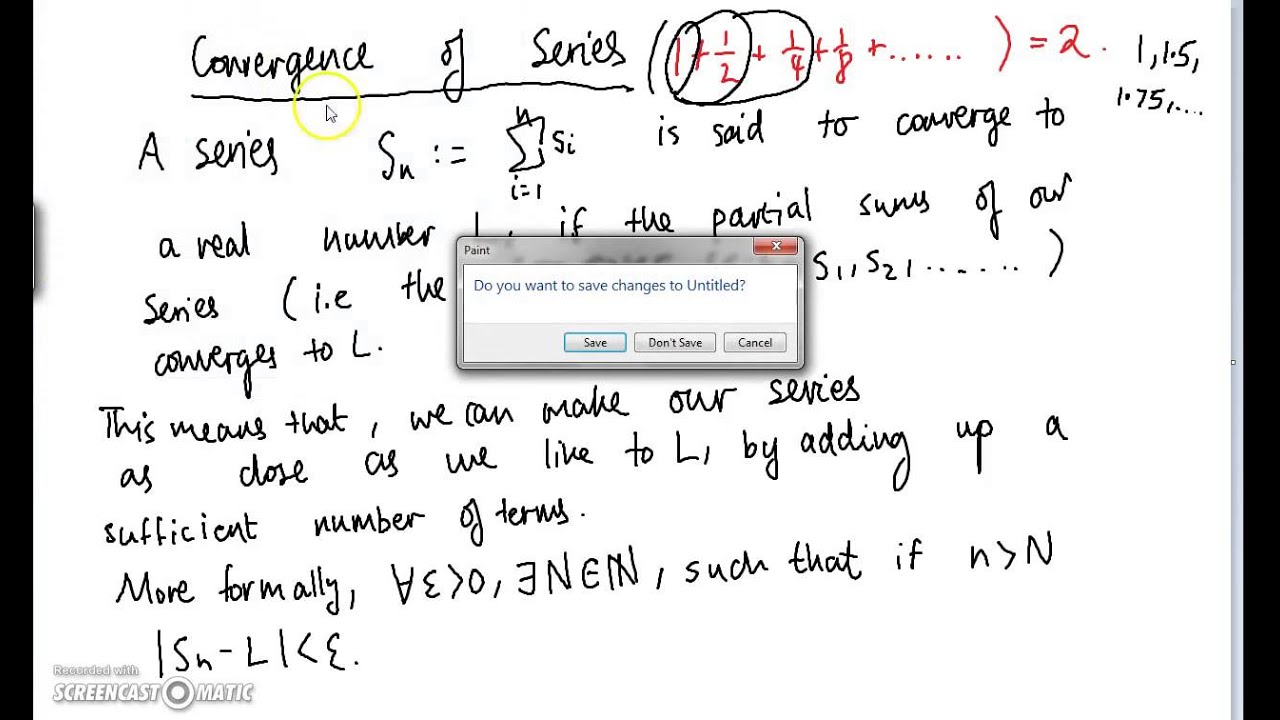 Convergence of Series (1 + 1/2 + 1/4 + 1/8 + ......) = 2. 1, 1.5,
1.75, ...
A series Sₙ := ∑ᵢ₌₁ⁿ sᵢ is said to converge to
a real number L, if the partial sums of our
series (i.e the S₁, S₂, ......)
converges to L.
Paint
Do you want to save changes to Untitled?
Save Don't Save Cancel
This means that, we can make our series
as close as we like to L, by adding up a
sufficient number of terms.
More formally, ∀ε>0, ∃N∈ℕ, such that if n>N
|Sₙ - L| < ε.
Recorded with
SCREENCAST O MATIC